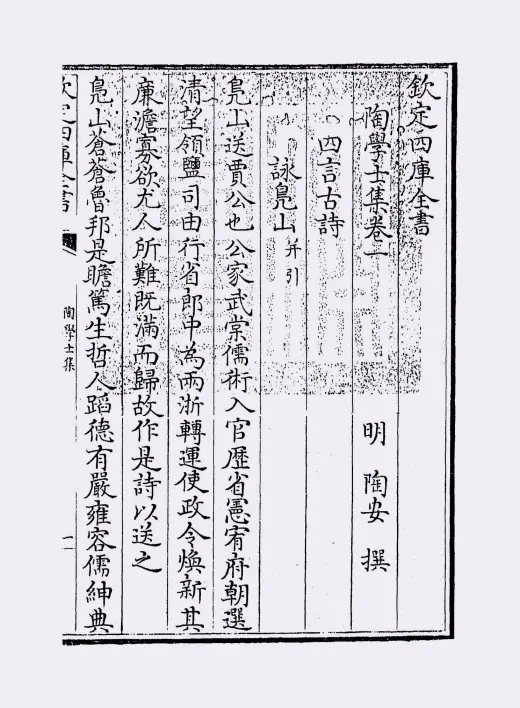 欽定四庫全書
陶學士集卷一
明 陶安 撰
四言古詩
詠鳧山并引
鳧山送賈公也公家武棠儒術入官歷省憲宥府朝選
清望領鹽司由行省郎中為兩浙轉運使政令煥新其
廉澹寡欲尤人所難既滿而歸故作是詩以送之
鳧山蒼蒼魯邦是瞻篤生哲人蹈德有嚴雍容儒紳典
欽定四庫全書
陶學士集
一